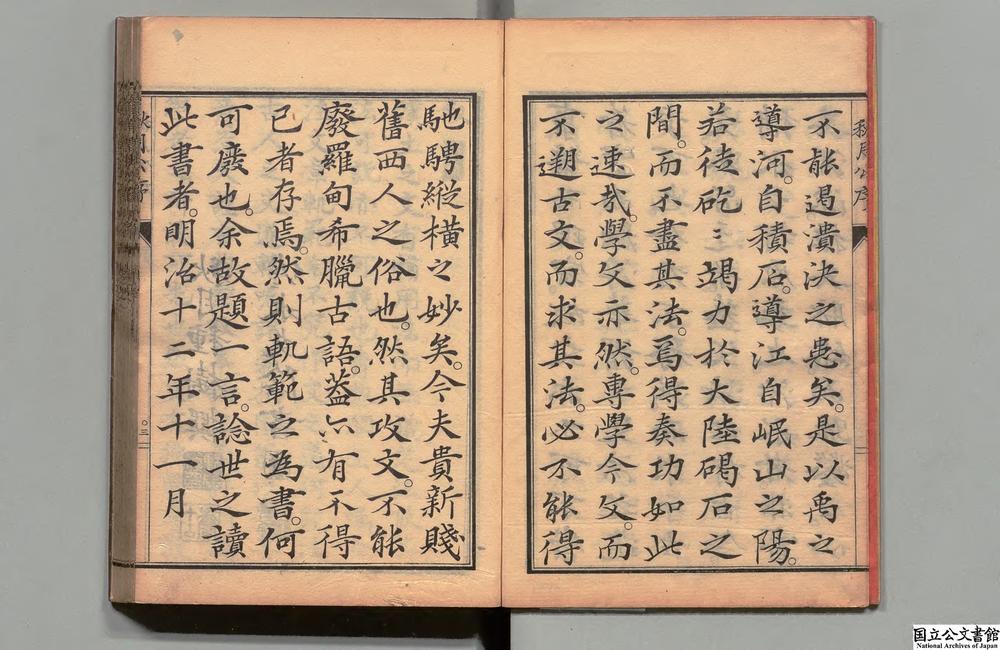 不能遏潰決之患矣。是以禹之
導河。自積石。導江自岷山之陽。
若徒矻〻竭力於大陸碣石之
間。而不盡其法。焉得奏功如此
之速哉。學文亦然。專學今文。而
不遡古文。而求其法。必不能得
馳騁縱橫之妙矣。今夫貴新賤
舊西人之俗也。然其攻文。不能
廢羅甸希臘古語。蓋亦有不得
已者存焉。然則軌範之為書。何
可廢也。余故題一言。諗世之讀
此書者。明治十二年十一月
国立公文書館
National Archives of Japan